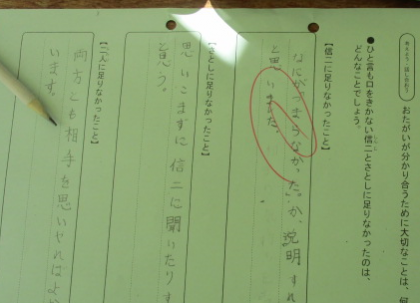 おたがいが分かり合うために大切なことは、
●ひと言も口をきかない信二とさとしに足りなかったのは、
どんなことでしょう。
【信二に足りなかったこと】
なにがつまらなかったか、説明すれ
と思いました。
【さとしに足りなかったこと】
思いこまずに信二に聞いたりす
と思う。
【二人に足りなかったこと】
両方とも相手を思いやればよか
います。